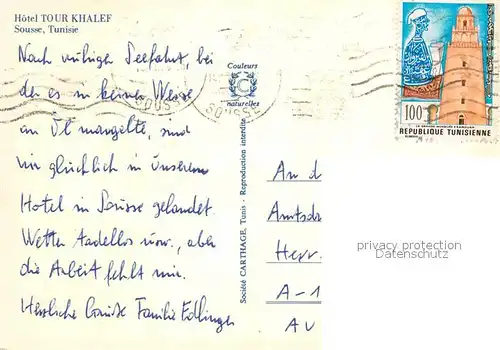 Hôtel TOUR KHALEF
Sousse, Tunisie
Nach ruhiger Seefahrt, bei
der es in keiner Weise
an Öl mangelte, sind
wir glücklich in unserem
Hotel in Sousse gelandet.
Wetter tadellos usw., aber
die Arbeit fehlt mir.
Herzliche Grüße Familie Edlinger
Couleurs
naturelles
SOUSSE
SOUSSE
Société CARTHAGE, Tunis - Reproduction interdite
100
REPUBLIQUE TUNISIENNE
An d
Amtsd
Herr
A-1
AU
privacy protection
Datenschutz